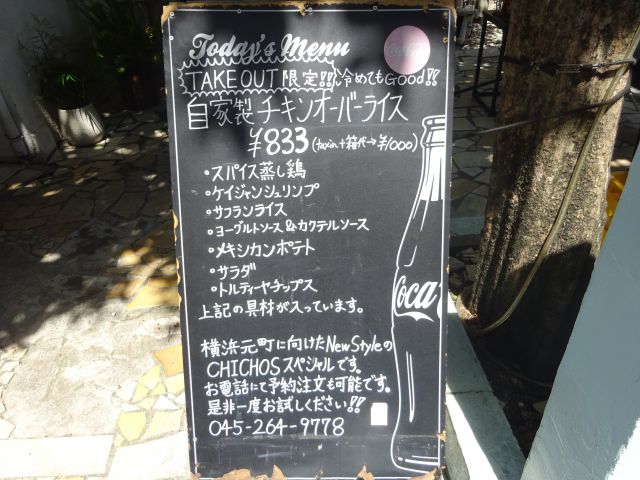 Today's Menu
TAKE OUT 限定!! 冷めてもGood!!
自家製 チキンオーバーライス
¥833 (taxin+箱代→¥1000)
・スパイス蒸し鶏
・ケイジャンシュリンプ
・サフランライス
・ヨーグルトソース&カクテルソース
・メキシカンポテト
・サラダ
・トルティーヤチップス
上記の具材が入っています。
横浜元町に向けたNew Styleの
CHICHOSスペシャルです。
お電話にて予約注文も可能です。
是非一度お試しください!!
045-264-9778
Coca